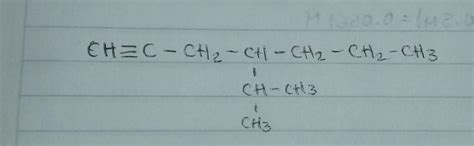 CH≡C-CH2-CH-CH2-CH2-CH3
CH-CH3
CH3